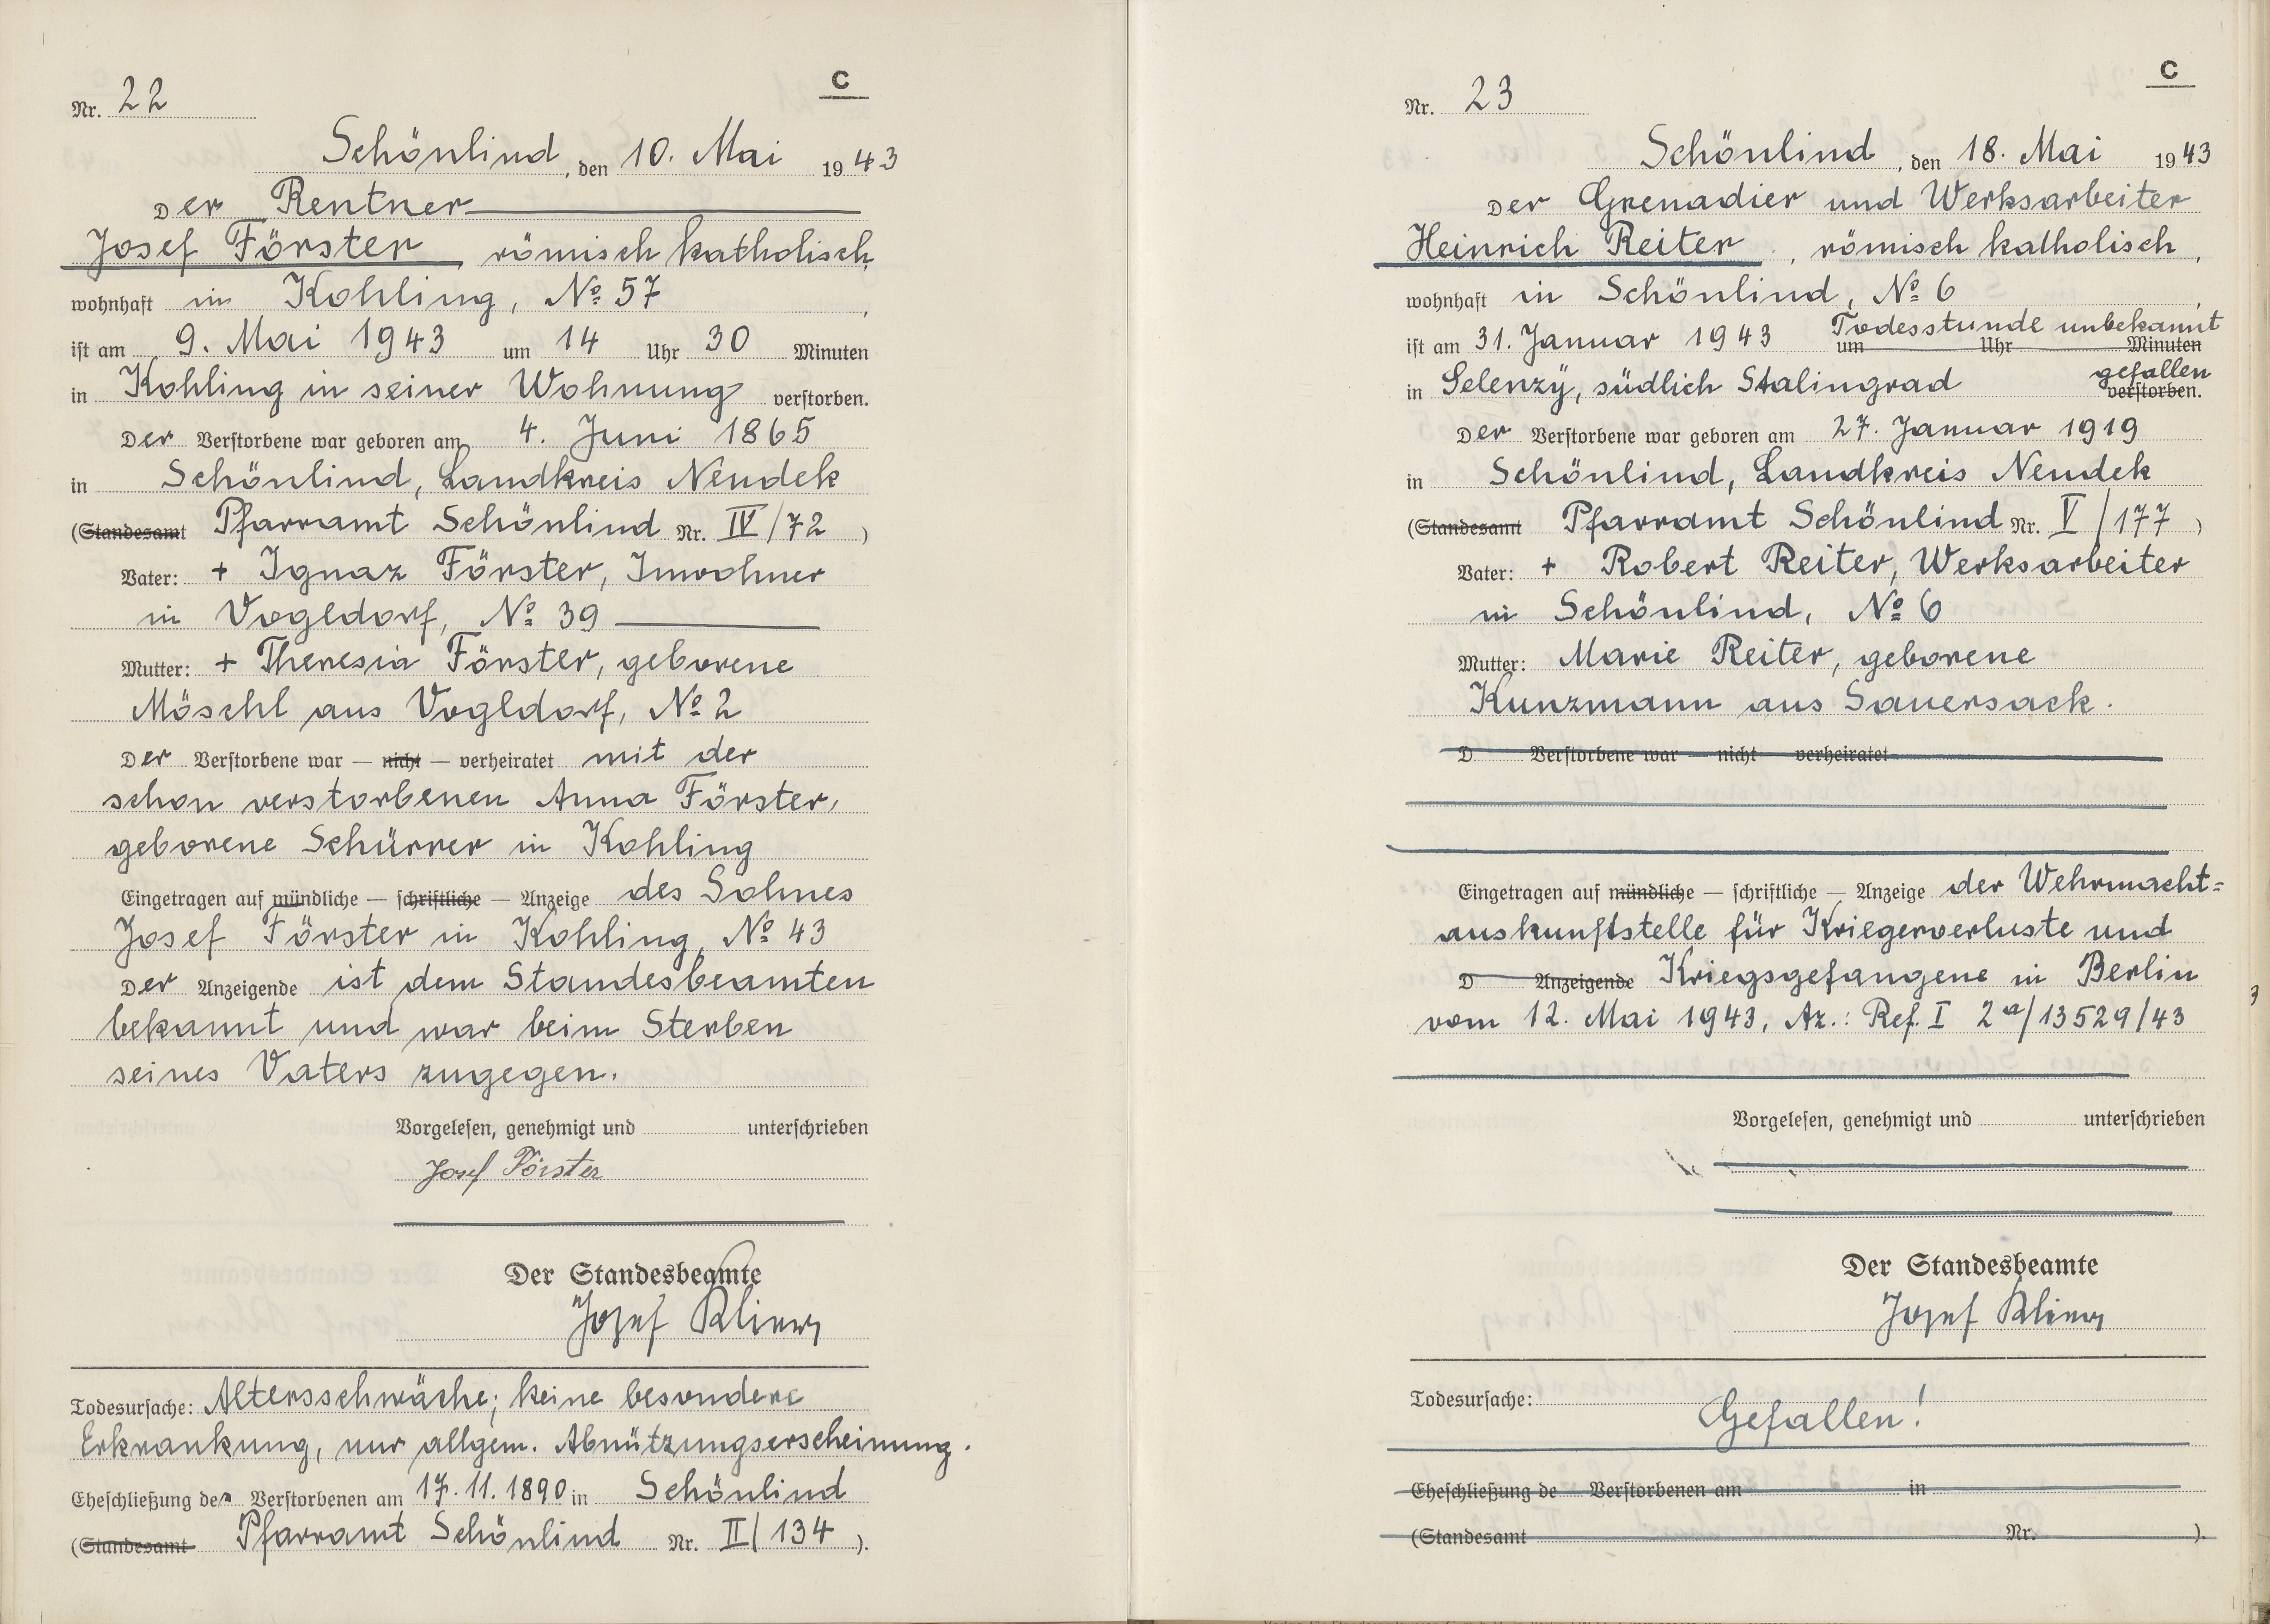 C
Nr. 22
Schönlind, den 10. Mai 1943
Der Rentner
Josef Förster römisch katholisch,
wohnhaft in Kohling, № 57,
ist am 9. Mai 1943 um 14 Uhr 30 Minuten
in Kohling in seiner Wohnung verstorben.
Der Verstorbene war geboren am 4. Juni 1865
in Schönlind, Landkreis Neudek
(Standesamt Pfarramt Schönlind Nr. IV/72)
Vater: + Ignaz Förster, Inwohner
in Vogldorf, № 39
Mutter: + Theresia Förster, geborene
Möschl aus Vogldorf, № 2
Der Verstorbene war — nicht — verheiratet mit der
schon verstorbenen Anna Förster,
geborene Schürrer in Kohling
Eingetragen auf mündliche — schriftliche — Anzeige des Sohnes
Josef Förster in Kohling, № 43
Der Anzeigende ist dem Standesbeamten
bekannt und war beim Sterben
seines Vaters zugegen.
Vorgelesen, genehmigt und unterschrieben
Josef Förster
Der Standesbeamte
Josef Klier
Todesursache: Altersschwäche; keine besondere
Erkrankung, nur allgem. Abnützungserscheinung.
Eheschließung des Verstorbenen am 17.11.1890 in Schönlind
(Standesamt Pfarramt Schönlind Nr. II/134).
C
Nr. 23
Schönlind, den 18. Mai 1943
Der Grenadier und Werksarbeiter
Heinrich Reiter, römisch katholisch,
wohnhaft in Schönlind, № 6,
Todesstunde unbekannt
ist am 31. Januar 1943 um Uhr Minuten
gefallen
in Selenzy, südlich Stalingrad verstorben.
Der Verstorbene war geboren am 27. Januar 1919
in Schönlind, Landkreis Neudek
(Standesamt Pfarramt Schönlind Nr. V/177)
Vater: + Robert Reiter, Werksarbeiter
in Schönlind, № 6
Mutter: Marie Reiter, geborene
Kunzmann aus Sauersack.
D Verstorbene war — nicht — verheiratet
Eingetragen auf mündliche — schriftliche — Anzeige der Wehrmacht=
auskunftstelle für Kriegerverluste und
D Anzeigende Kriegsgefangene in Berlin
vom 12. Mai 1943, Az.: Ref. I 2a/13529/43
Vorgelesen, genehmigt und unterschrieben
Der Standesbeamte
Josef Klier
Todesursache: Gefallen!
Eheschließung de Verstorbenen am in
(Standesamt Nr. ).